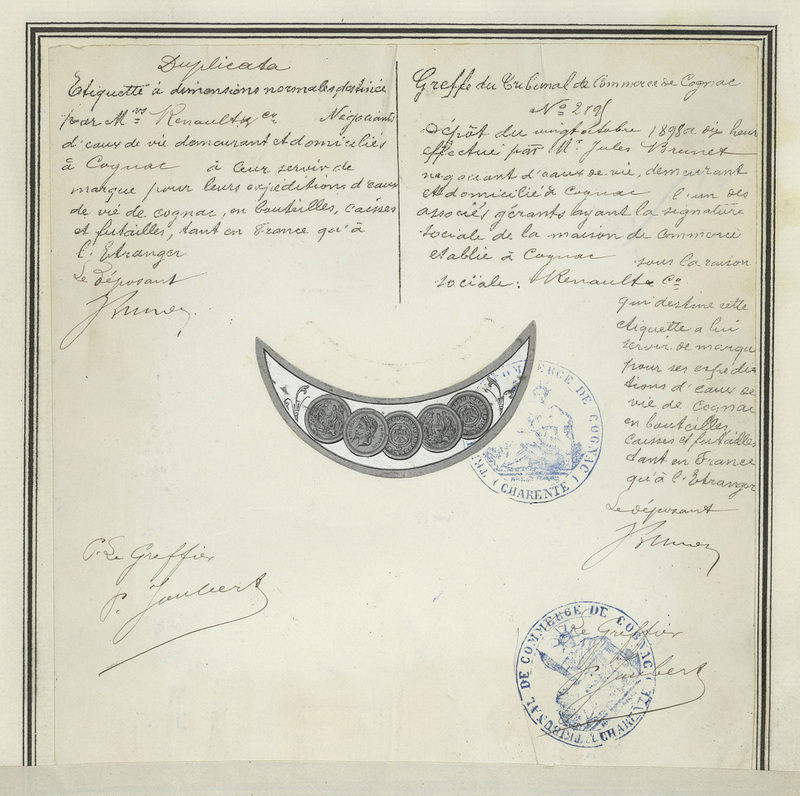 Duplicata
Etiquette à dimensions normales, destinée
par Mrs Renault & Co Négociants
d'eaux de vie demeurant et domiciliés
à Cognac à leur servir de
marque pour leurs expéditions d'eaux
de vie de cognac, en bouteilles, caisses
et futailles, tant en France qu'à
l'Etranger
Le déposant
J Brunet
Greffe du Tribunal de Commerce de Cognac
No
Dépôt du vingt octobre 1898 a dix heures
effectué par Mr. Jules Brunet
négociant d'eaux de vie, demeurant
et domicilié à Cognac l'un des
associés gérants ayant la signature
sociale de la maison de commerce
établie à Cognac sous la raison
sociale: Renault & Co
qui destine cette
étiquette a lui
servir de marque
pour ses expédi
tions d'eaux de
vie de Cognac
en bouteilles
caisses et futailles
tant en France
qu'à l'Etranger
Le déposant
J Brunet
COMMERCE DE COGNAC
(CHARENTE)
P. Le Greffier
P. Joubert
Le Greffier
P. Joubert
TRIBUNAL DE COMMERCE DE COGNAC
(CHARENTE)